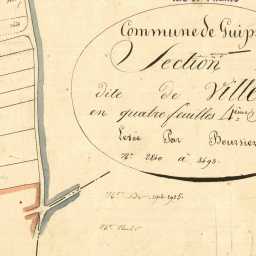 Commune de Guip
Section
dite de Ville
en quatre feuilles 4ème
Levée Par Boursier
Nos 2810 à 3493.